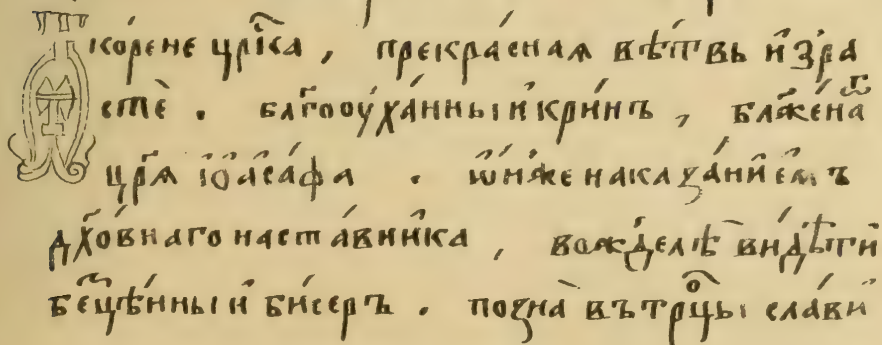 Ѿ ко́рене црⷭ҇ка , прекра́снаѧ вѣ́твь и҆зра
стѐ . бл҃гооу҆ха́нныи кри́нъ , бл҃же́наⷢ҇
цр҃ѧ і҆ѡ҆аса́фа . ѡ҆́нже наказа́нїемъ
дх҃о́внаго наста́вника , вожделѣ̀ ви́дѣти
бесцѣ́нныи би́серъ . позна̀ въ трⷪ҇цы сла́ви